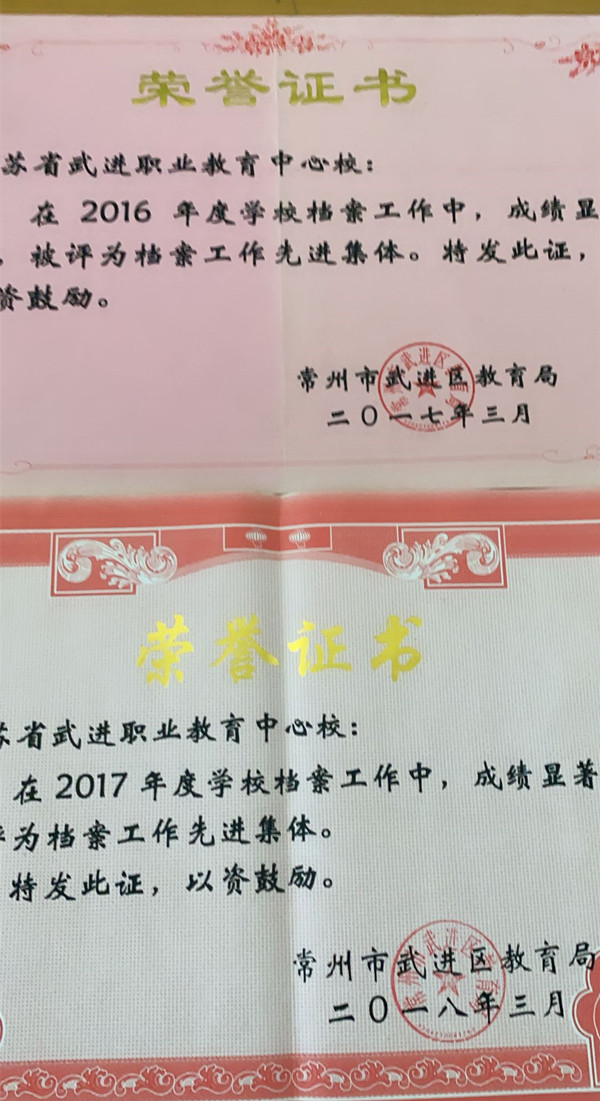 荣誉证书
苏省武进职业教育中心校：
在 2016 年度学校档案工作中，成绩显
，被评为档案工作先进集体。特发此证，
资鼓励。
常州市武进区教育局
二〇一七年三月
荣誉证书
苏省武进职业教育中心校：
在 2017 年度学校档案工作中，成绩显著
评为档案工作先进集体。
特发此证，以资鼓励。
常州市武进区教育局
二〇一八年三月